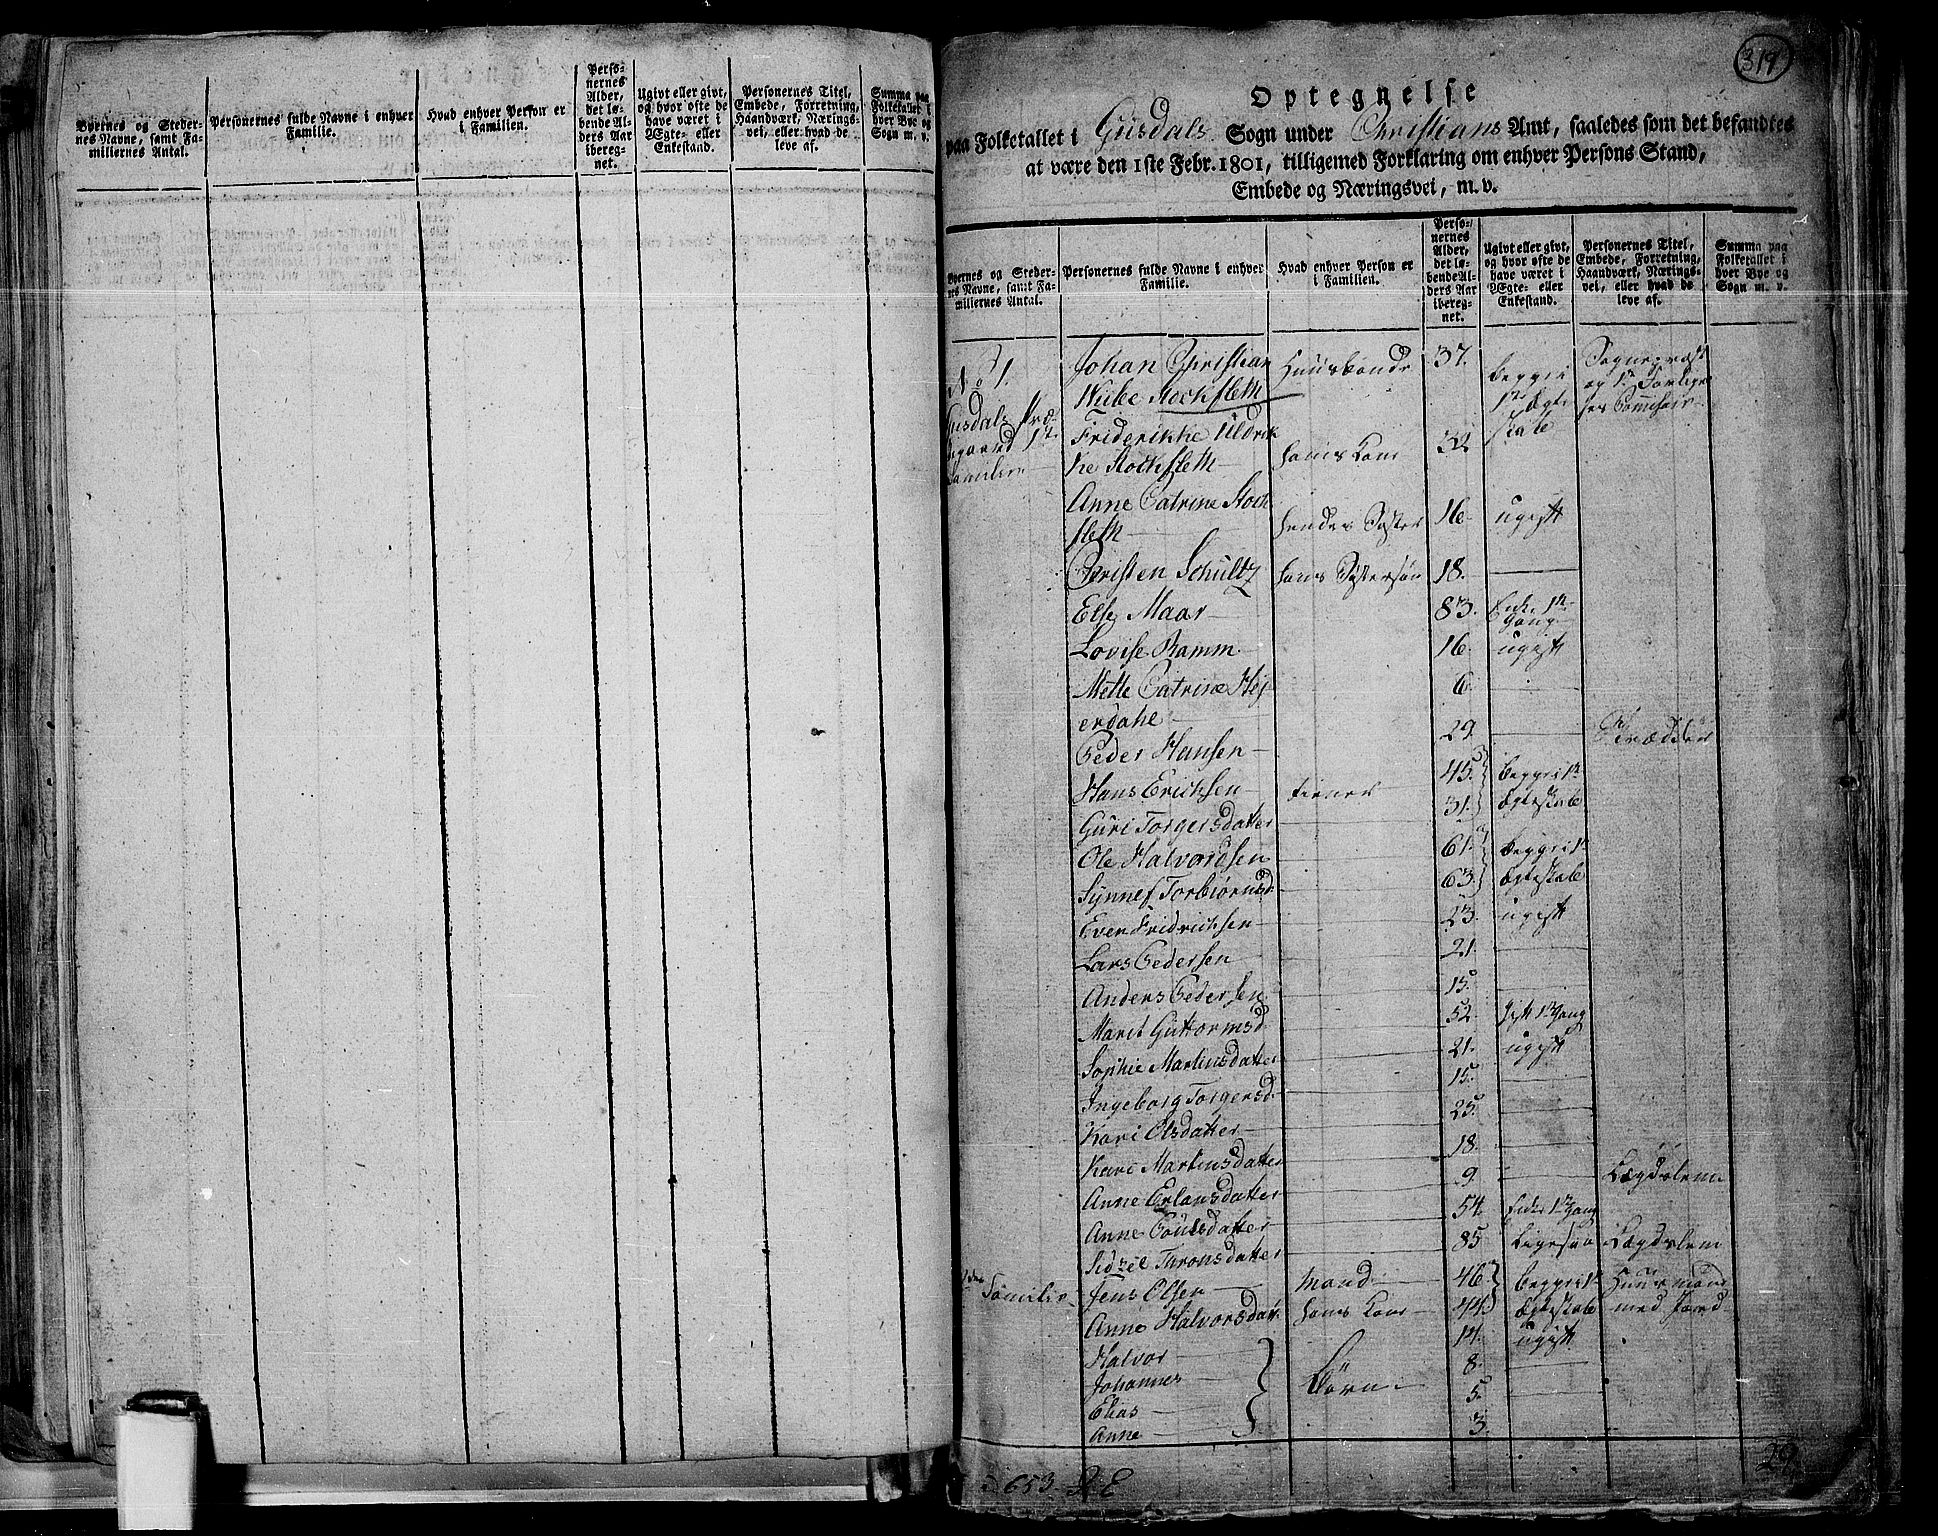 Byernes og Steder-
nes Navne, samt Fa-
millernes Antal.
Personernes fulde Navne i enhver
Familie.
Hvad enhver Person er
i Familien.
Perso-
nernes
Alder,
det lø-
bende Al-
ders Aar
iberegnet.
Ugivt eller givt,
og hvor ofte de
have været i
Ægte- eller
Enkestand.
Personernes Titel,
Embede, Forretning,
Haandværk, Nærings-
vei, eller hvad de
leve af.
Summa paa
Folketallet i
hver Bye og
Sogn m. v.
319
Optegnelse
paa Folketallet i Gusdals Sogn under Christians Amt, saaledes som det befandtes
at være den 1ste Febr. 1801, tilligemed Forklaring om enhver Persons Stand,
Embede og Næringsvei, m. v.
Byernes og Steder-
nes Navne, samt Fa-
millernes Antal.
Personernes fulde Navne i enhver
Familie.
Hvad enhver Person er
i Familien.
Perso-
nernes
Alder,
det lø-
bende Al-
ders Aar
ibereg-
net.
Ugivt eller givt,
og hvor ofte de
have været i
Ægte- eller
Enkestand.
Personernes Titel,
Embede, Forretning,
Haandværk, Nærings-
vei, eller hvad de
leve af.
Summa paa
Folketallet i
hver Bye og
Sogn m. v.
No 1.
Gusdals Præ-
stegaard 1te
Familie
Johan Christian Huusbonde 37. begge i Sognepræst
Wibe Stockfleth 1te Ægte og
Friderikke Uldrik skab
ke Stockfleth hans Kone 32
Anne Catrine Stock
fleth hendes Syster 16 ugift
Christen Schultz hans Systersøn 18.
Else Maar 83. Enke 1te Gang
Lovise Ramm 16. ugift
Mette Catrine Hej 6
erdahl
Peder Hansen 29.
Hans Erichsen tiener 45. begge i 1te
Guri Torgersdatter 31. Ægteskab
Ole Halvordsen 61. begge i 1te
Synnef Torbiørnsd. 63. Ægteskab
Even Fridrichsen 23. ugift
Lars Pedersen 21.
Anders Pedersen 15.
Marit Guttormsd. 52. gift 1te Gang
Sophie Martinsdatter 21. ugift
Ingeborg Torgersd. 15.
Kari Olsdatter 25.
Kari Martinsdatter 18.
Anne Erlansdatter 9 Lægdslem
Anne Poulsdatter 54. Enke 1te Gang
Sidzel Tronsdatter 85 Ligesaa Lægdslem
2den Familie Jens Olsen Mand 46 begge i 1te Huusmand
Anne Halvorsdatr. hans Kone 44 Ægteskab med Jord
Halvor 14. ugift
Johannes Børn 8.
Elias 5.
Anne 3.
29
653. R E